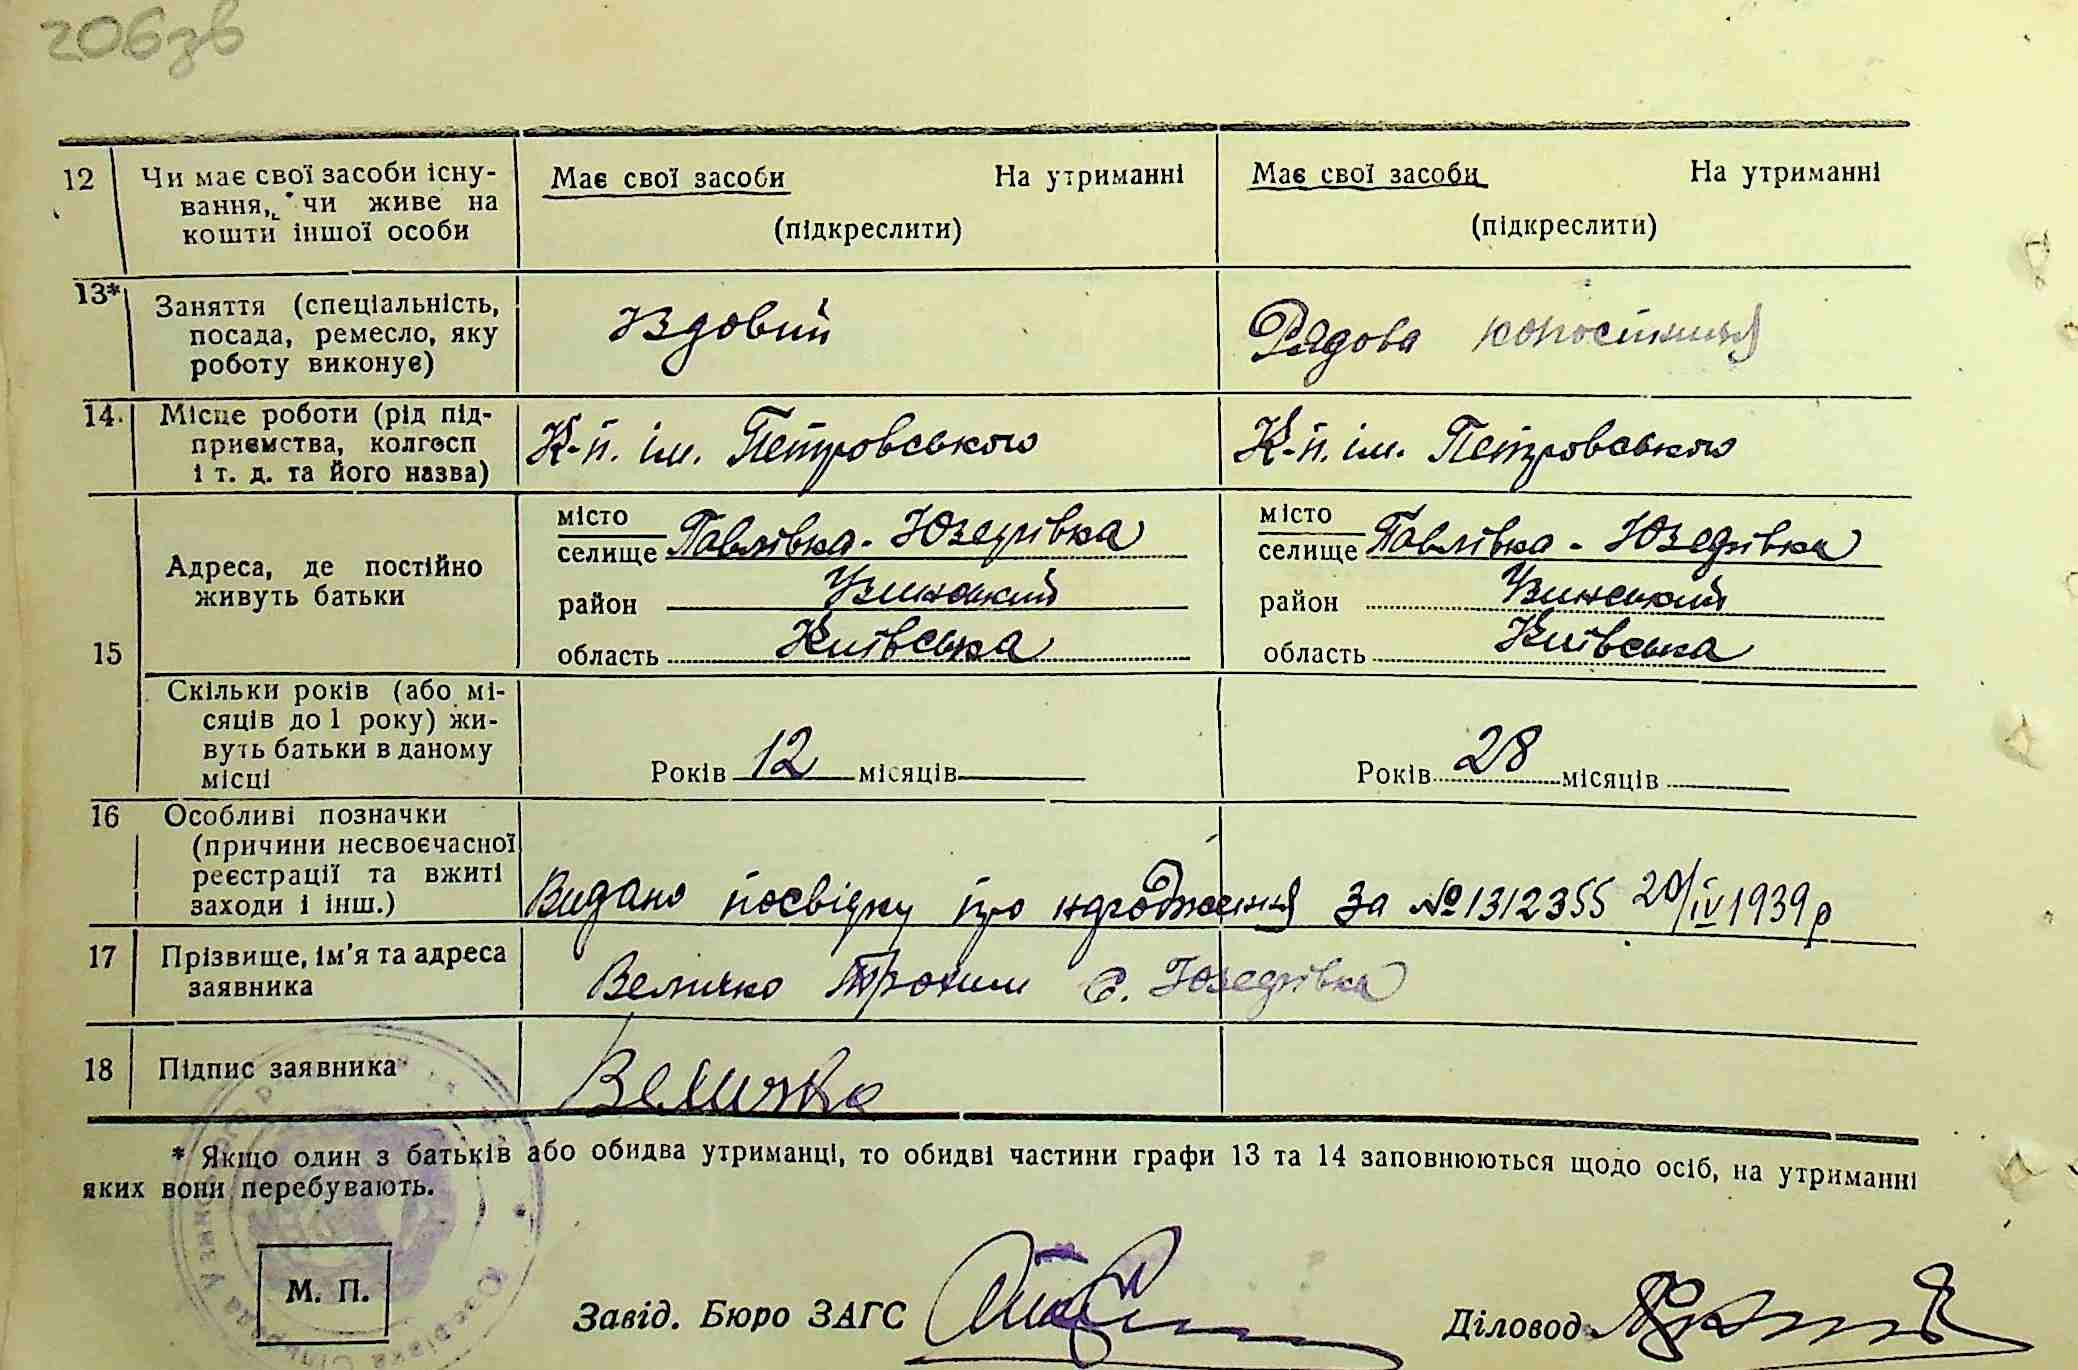 206зв
12 Чи має свої засоби існу-
вання, чи живе на
кошти іншої особи
Має свої засоби На утриманні
(підкреслити)
Має свої засоби На утриманні
(підкреслити)
13* Заняття (спеціальність,
посада, ремесло, яку
роботу виконує)
Їздовий
Рядова
14. Місце роботи (рід під-
приємства, колгосп
і т. д. та його назва)
К-п. ім. Петровського
К-п. ім. Петровського
15
Адреса, де постійно
живуть батьки
місто
селище Павлівка - Юзефівка
район Узинський
область Київська
місто
селище Павлівка - Юзефівка
район Узинський
область Київська
Скільки років (або мі-
сяців до 1 року) жи-
вуть батьки в даному
місці
Років 12 місяців
Років 28 місяців
16 Особливі позначки
(причини несвоєчасної
реєстрації та вжиті
заходи і інш.)
Видано посвідку про народження за № 1312355 20/IV 1939 р
17 Прізвище, ім'я та адреса
заявника
Величко Трохим с. Юзефівка
18 Підпис заявника
Величко
* Якщо один з батьків або обидва утриманці, то обидві частини графи 13 та 14 заповнюються щодо осіб, на утриманні
яких вони перебувають.
М. П.
Завід. Бюро ЗАГС
Діловод